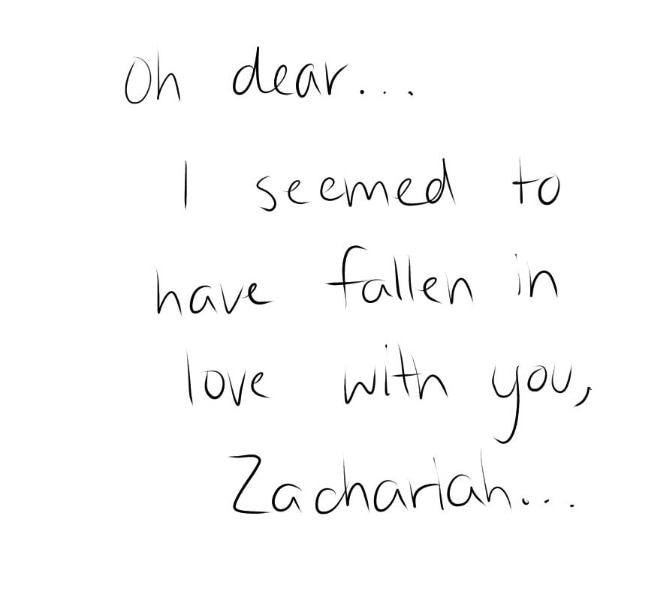 Oh dear...
I seemed to
have fallen in
love with you,
Zachariah...